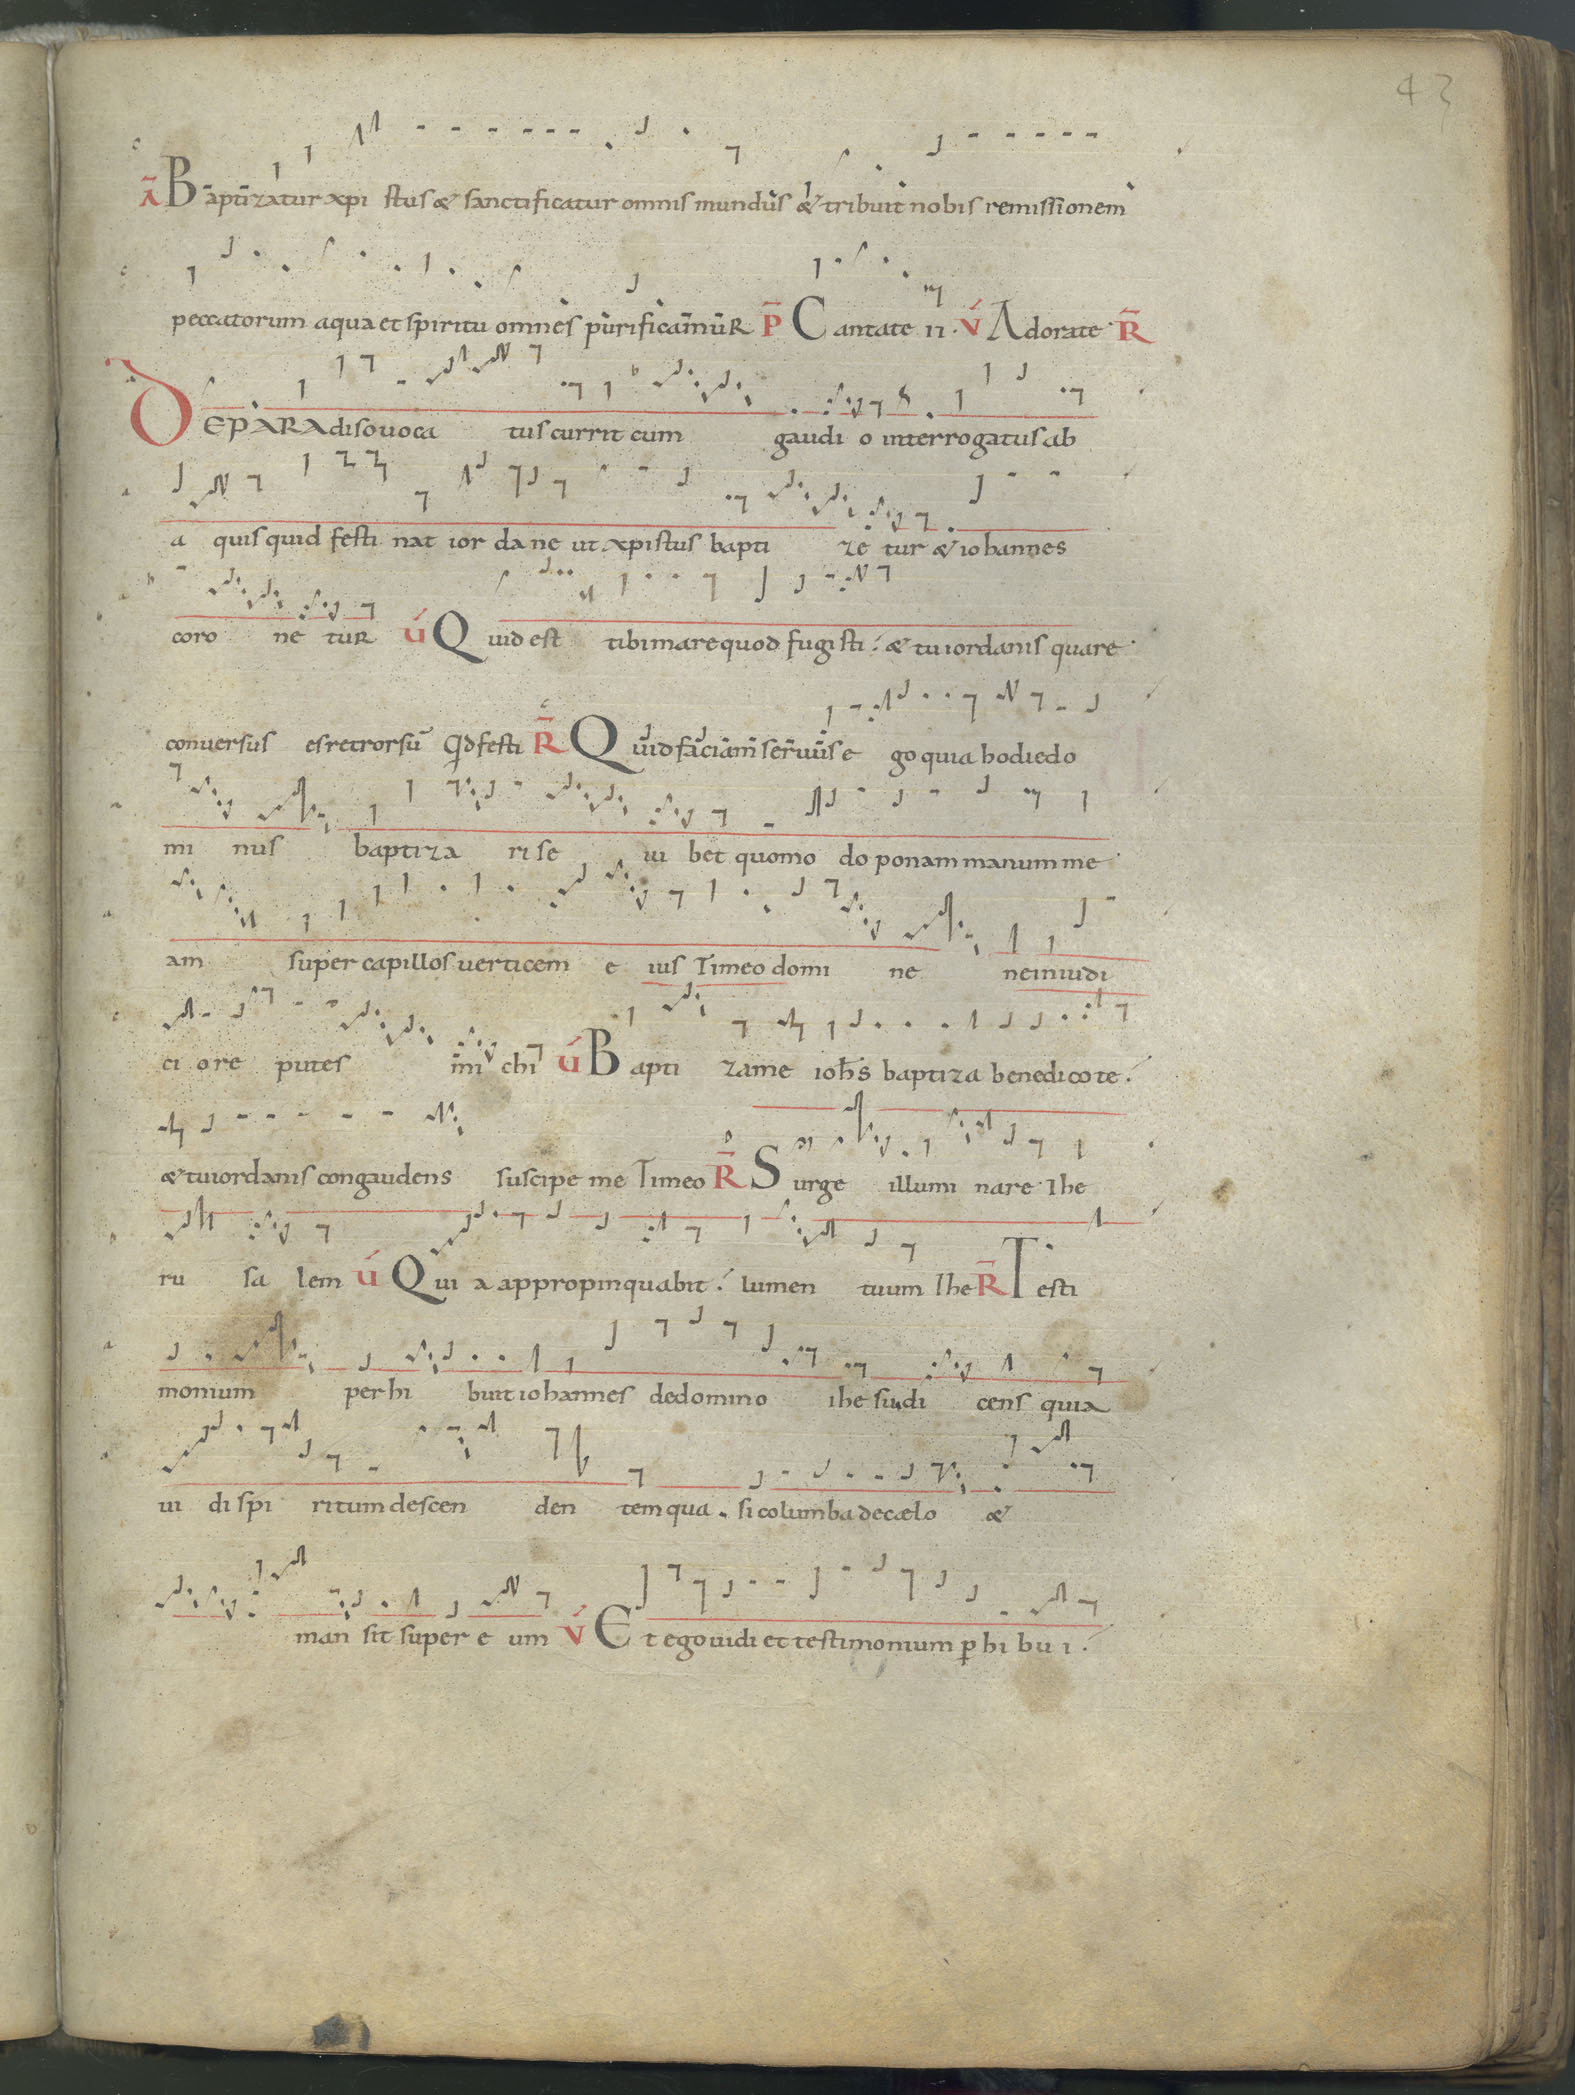 43
A Baptizatur xpi stus & sanctificatur omnis mundus & tribuit nobis remissionem
peccatorum aqua et spiritu omnes purificamuR P Cantate II. V Adorate R
DE PARAdiso uoca tus currit cum gaudi o interrogatus ab
a quis quid festi nat ior dane ut xpistus bapti ze tur & iohannes
coro ne tuR V Quid est tibi mare quod fugisti? & tu iordanis quare
conuersus es retrorsū Qd festi R Quid faciam seruus e go quia hodie do
mi nus baptiza ri se iu bet quomo do ponam manum me
am super capillos uerticem e ius Timeo domi ne ne iniudi
ci o re putes mi chi V Bapti zame iohs baptiza benedico te.
& tu iordanis congaudens suscipe me Timeo R Surge illumi nare Ihe
ru sa lem V Qui a appropinquabit lumen tuum Ihe R Testi
monium perhi buit iohannes de domino ihe su di cens quia
ui di spi ritum descen den tem qua. si columba de cælo &
man sit super e um V Et ego uidi et testimonium p hi bu i.